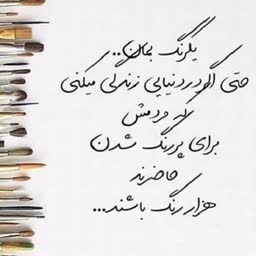 یکرنگ بمان..
حتی اگر در دنیایی زندگی میکنی
که مردمش
برای پررنگ شدن
حاضرند
هزار رنگ باشند...